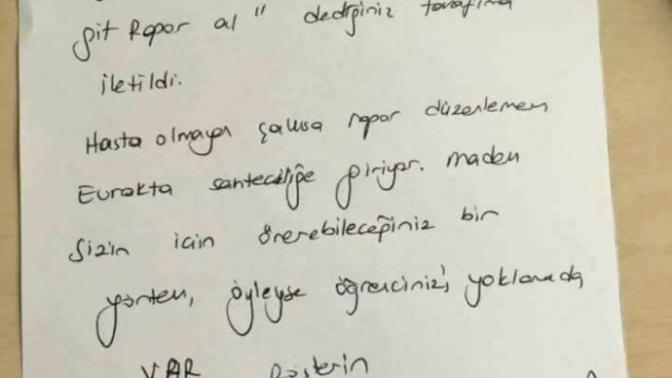 git Rapor al" dediğiniz tarafıma
iletildi.
Hasta olmayan şahısa rapor düzenlemem
Evrakta sahteciliğe giriyor. madem
Sizin için önerebileceğiniz bir
yöntem, öyleyse öğrencinizi yoklamada
VAR gösterin